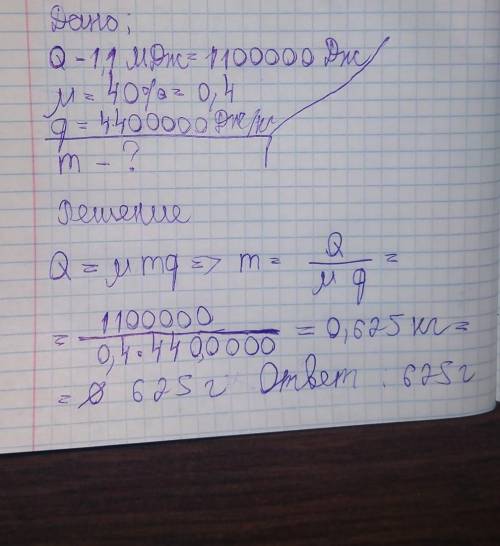 Дано:
Q - 1,1 МДж = 1100000 Дж
μ = 40% = 0,4
q = 4400000 Дж/кг
m - ?
Решение
Q = μmq => m = Q / μq =
= 1100000 / 0,4·4400000 = 0,625 кг =
= 625 г Ответ: 625 г